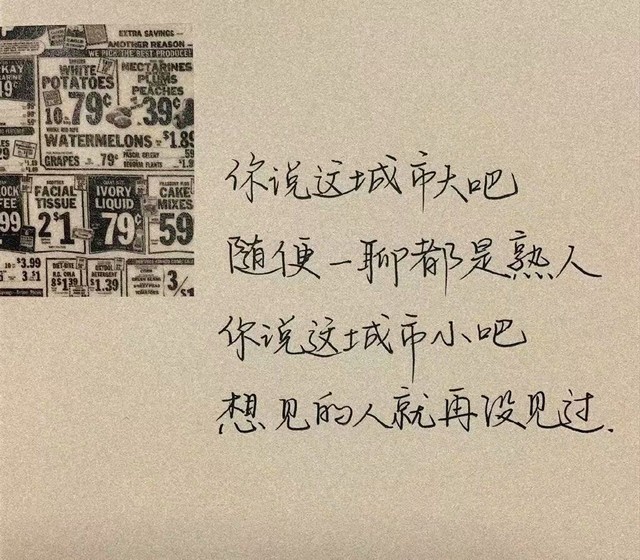 EXTRA SAVINGS
ANOTHER REASON
WE PICK THE BEST PRODUCE!
WHITE
POTATOES
10 79¢
NECTARINES
PLUMS
PEACHES
39¢
WATERMELONS $1.89
GRAPES 79¢
FACIAL
TISSUE
2 $1
IVORY
LIQUID
79¢
CAKE
MIXES
59
99
$3.99
3 $1
$1.39
3/$1
你说这城市大吧
随便一聊都是熟人
你说这城市小吧
想见的人就再没见过.